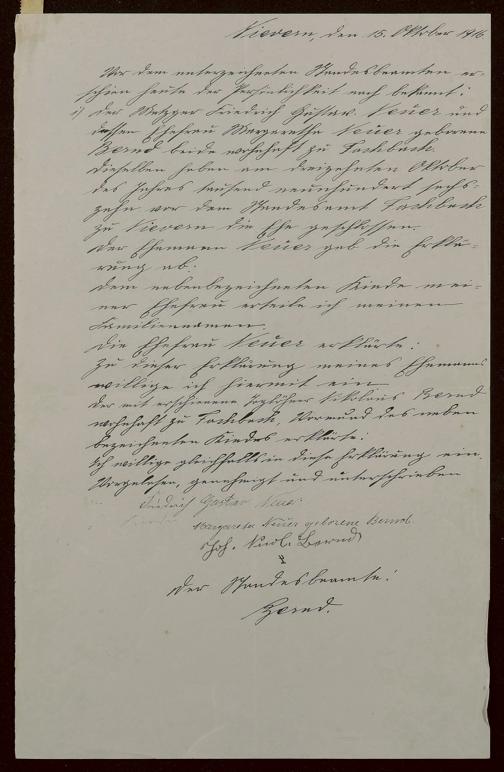 Nievern, den 15. Oktober 1916
Vor dem unterzeichneten Standesbeamten er-
schien heute der Persönlichkeit nach bekannt:
1) der Metzger Friedrich Gustav Neuer und
dessen Ehefrau Margaretha Neuer geborene
Bernd beide wohnhaft zu Fachbach.
Dieselben haben am dreizehnten Oktober
des Jahres tausend neunhundert sechs-
zehn vor dem Standesamt Fachbach
zu Nievern die Ehe geschlossen.
Der Ehemann Neuer gab die Erklä-
rung ab:
Dem nebenbezeichneten Kinde mei-
ner Ehefrau erteile ich meinen
Familiennamen.
Die Ehefrau Neuer erklärte:
Zu dieser Erklärung meines Ehemanns
willige ich hiermit ein
Der mit erschienene Nikolaus Bernd
wohnhaft zu Fachbach, Vormund des neben
bezeichneten Kindes erklärte:
Ich willige gleichfalls in diese Erklärung ein.
Vorgelesen, genehmigt und unterschrieben
Friedrich Gustav Neuer
Margareta Neuer geborene Bernd
Joh. Nicol. Bernd
Der Standesbeamte:
Bernd.